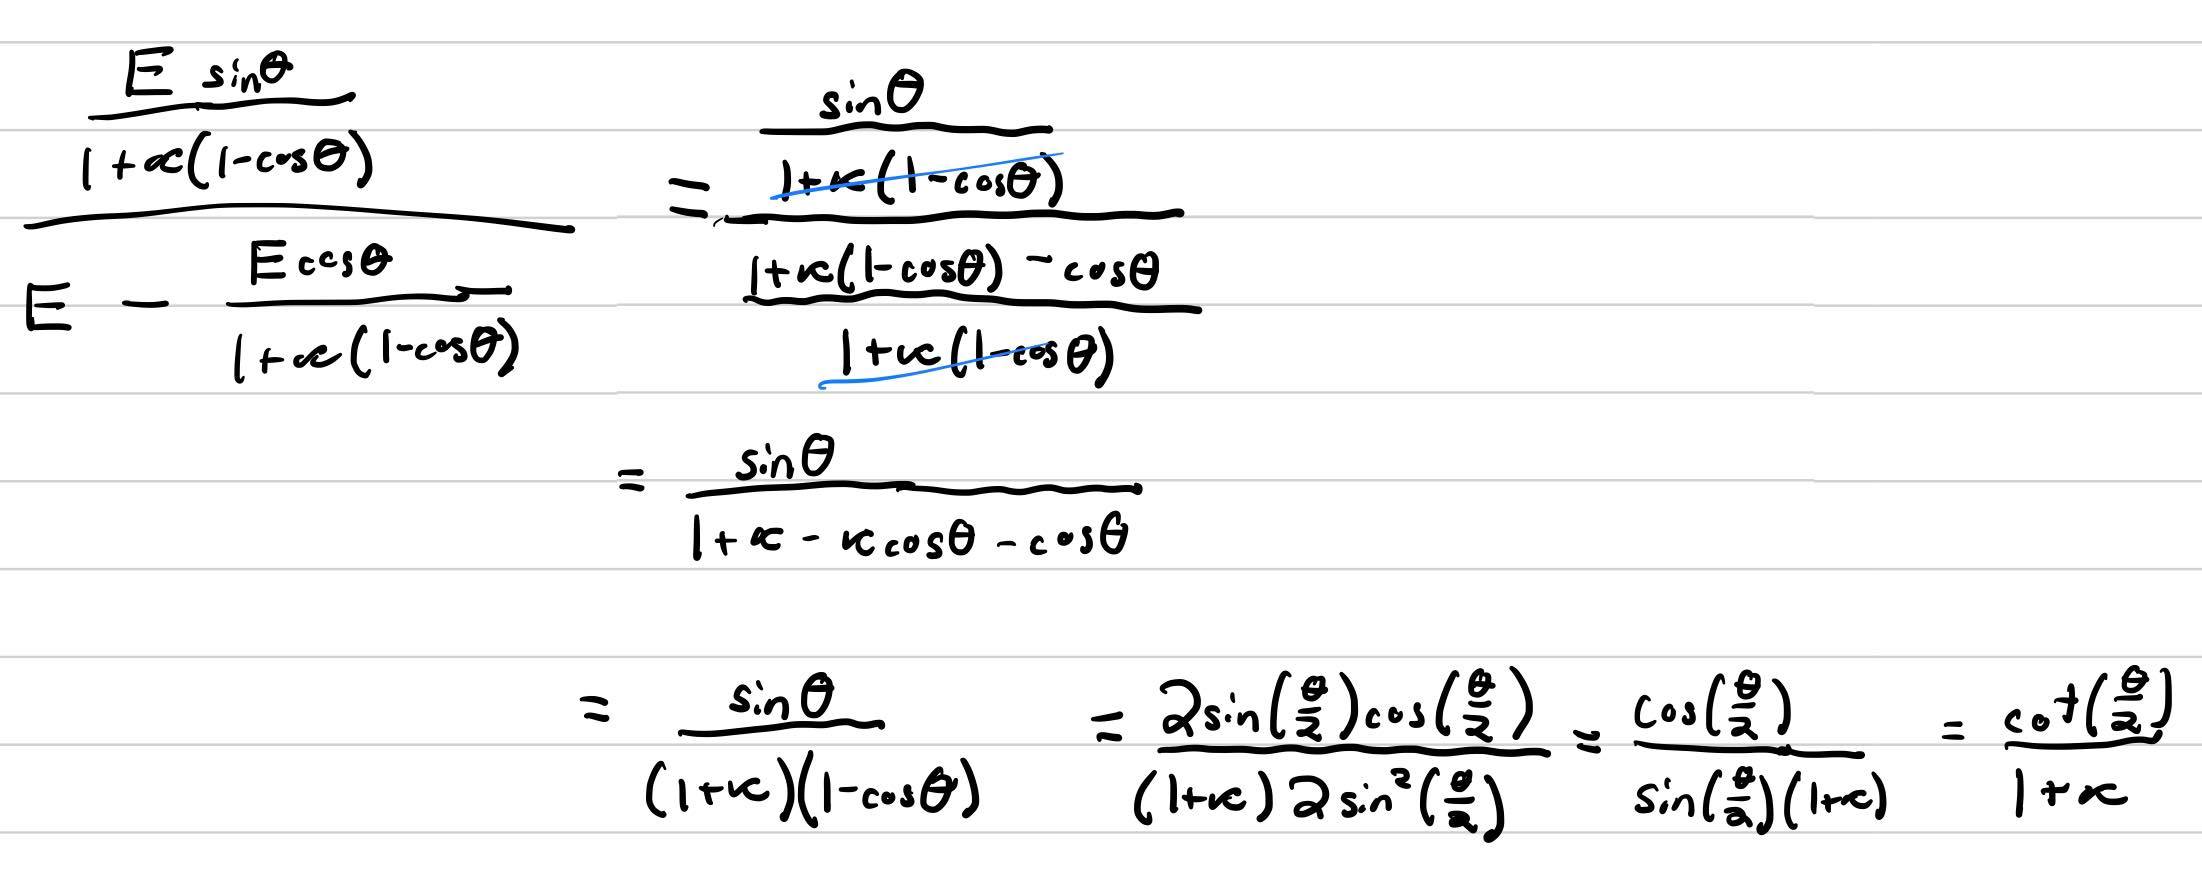 \frac{\frac{E \sin\theta}{1+\kappa(1-\cos\theta)}}{E - \frac{E\cos\theta}{1+\kappa(1-\cos\theta)}} = \frac{\frac{\sin\theta}{1+\kappa(1-\cos\theta)}}{\frac{1+\kappa(1-\cos\theta)-\cos\theta}{1+\kappa(1-\cos\theta)}}
= \frac{\sin\theta}{1+\kappa-\kappa\cos\theta-\cos\theta}
= \frac{\sin\theta}{(1+\kappa)(1-\cos\theta)} = \frac{2\sin(\frac{\theta}{2})\cos(\frac{\theta}{2})}{(1+\kappa)2\sin^2(\frac{\theta}{2})} = \frac{\cos(\frac{\theta}{2})}{\sin(\frac{\theta}{2})(1+\kappa)} = \frac{\cot(\frac{\theta}{2})}{1+\kappa}